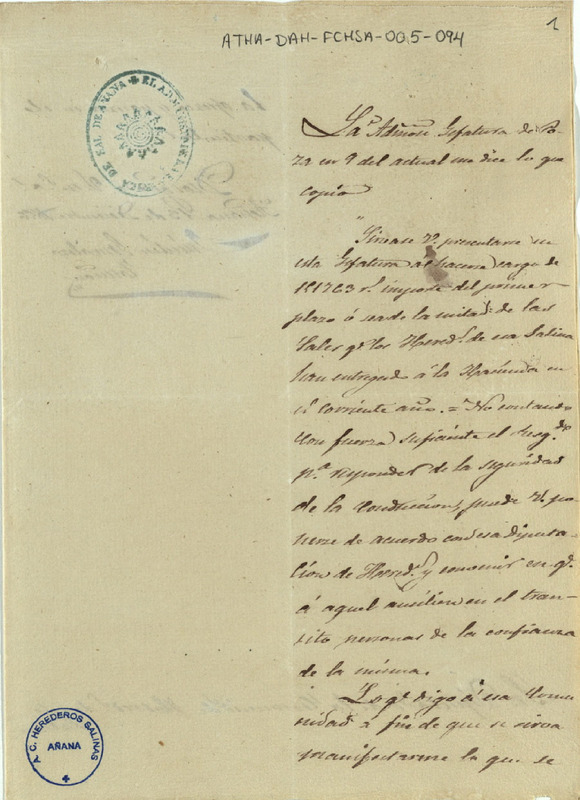 1
ATHA-DAH-FCHSA-005-094
EL ADMINISTRADOR DE LA FABRICA DE SAL DE AÑANA
La Admon Gefatura de Po-
za en 9 del actual me dice lo que
copio
"Sirvase V. presentarse en
esta Gefatura al hacerse cargo de
181763 r.s importe del primer
plazo ó sea de la mitad de las
Sales q.e los Hered.s de esa Salina
han entregado á la Hacienda en
el corriente año. = No contando
con fuerza suficiente el Resg.do
p.a responder de la seguridad
de la conduccion, puede V. po-
nerse de acuerdo con esa Diputa-
cion de Hered.s y convenir en q.e
á aquel auxilien en el tran-
sito personas de la confianza
de la misma.
Lo q.e digo á esa Comu-
nidad á fin de que se sirva
manifestarme lo que se
A. C. HEREDEROS SALINAS
AÑANA